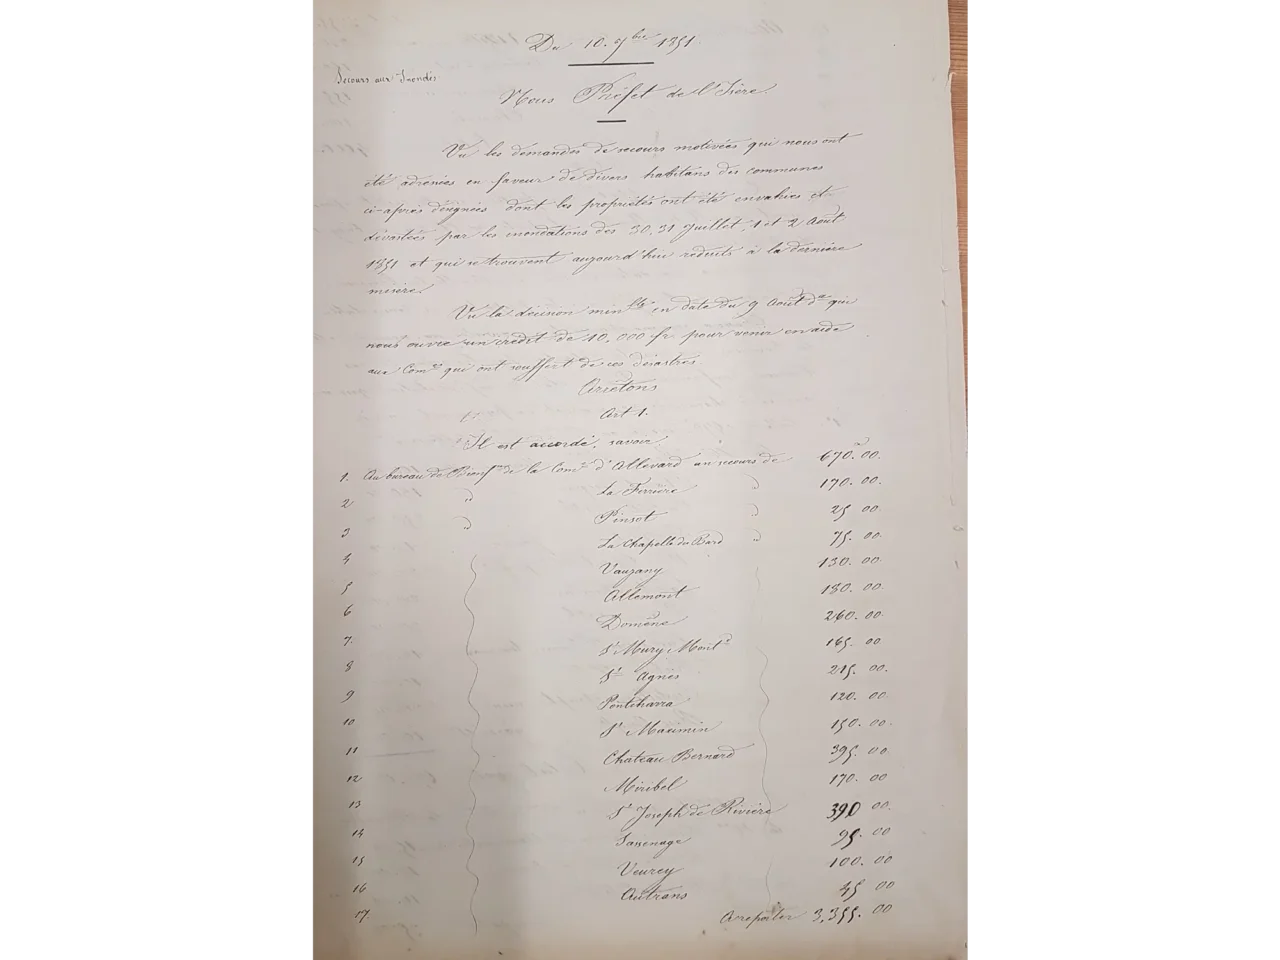 Du 10. 7bre 1851.
Secours aux Inondés
Nous Préfet de l'Isère
Vu les demandes de secours motivées qui nous ont
été adressées en faveur de divers habitans des communes
ci-après désignées dont les propriétés ont été envahies et
dévastées par les inondations des 30, 31 Juillet, 1 et 2 Août
1851 et qui se trouvent aujourd'hui réduits à la dernière
misère.
Vu la décision minlle en date du 9 Août dr qui
nous ouvre un crédit de 10,000 fr. pour venir en aide
aux Comes qui ont souffert de ces désastres
Arrêtons
Art 1.
Il est accordé, savoir.
1. Au bureau de Bienfce de la Come d'Allevard un secours de 670. 00.
2 " La Ferrière " 170. 00.
3 " Pinsot " 25. 00
4 La Chapelle du Bard " 75. 00.
5 Vaujany 130. 00.
6 Allemont 180. 00.
7. Domêne 260. 00
8 St Mury Montd 165. 00
9 Ste Agnès 215. 00.
10 Pontcharra 120. 00.
11 St Maximin 150. 00.
12 Chateau Bernard 395. 00.
13 Miribel 170. 00
14 St Joseph de Rivière 390 00.
15 Sassenage 95. 00
16 Veurey 100. 00
17. Autrans 45 00
A reporter 3,355. 00